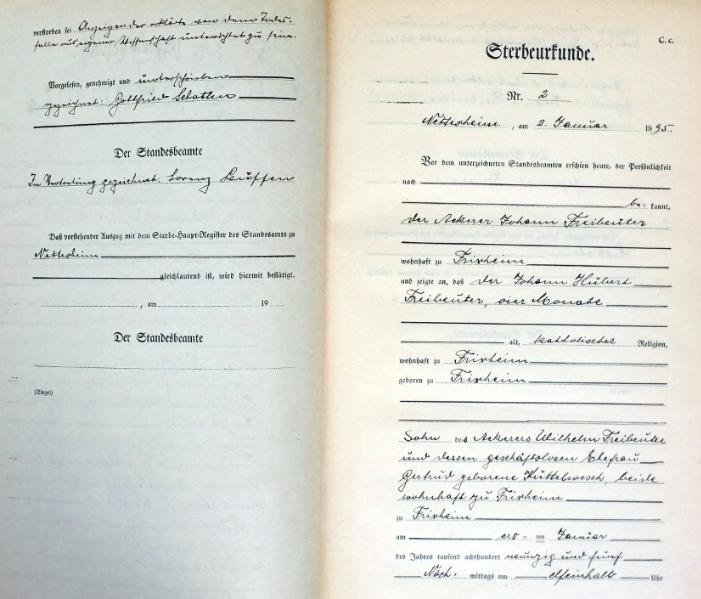 verstorben sei. Anzeigender erklärte von dem Todes-
falle aus eigener Wissenschaft unterrichtet zu sein.
Vorgelesen, genehmigt und unterschrieben
gezeichnet: Gottfried Schotten
Der Standesbeamte
In Vertretung gezeichnet: Lorenz
Daß vorstehender Auszug mit dem Sterbe-Haupt-Register des Standesamts zu
Nettersheim
gleichlautend ist, wird hiermit bestätigt.
, am 19
Der Standesbeamte
(Siegel)
C. c.
Sterbeurkunde.
Nr. 2
Nettersheim, am 2. Januar 1895.
Vor dem unterzeichneten Standesbeamten erschien heute, der Persönlichkeit
nach
be- kannt,
der Ackerer Johann Freibeuter
wohnhaft zu Frixheim
und zeigte an, daß der Johann Hubert
Freibeuter, vier Monate
alt, katholischer Religion,
wohnhaft zu Frixheim
geboren zu Frixheim
Sohn des Ackerers Wilhelm Freibeuter
und dessen geschäftslosen Ehefrau
Gertrud geborene Hüttelwesch, beide
wohnhaft zu Frixheim
zu Frixheim
am ers- ten Januar
des Jahres tausend achthundert neunzig und fünf
Nach- mittags um elfeinhalb Uhr